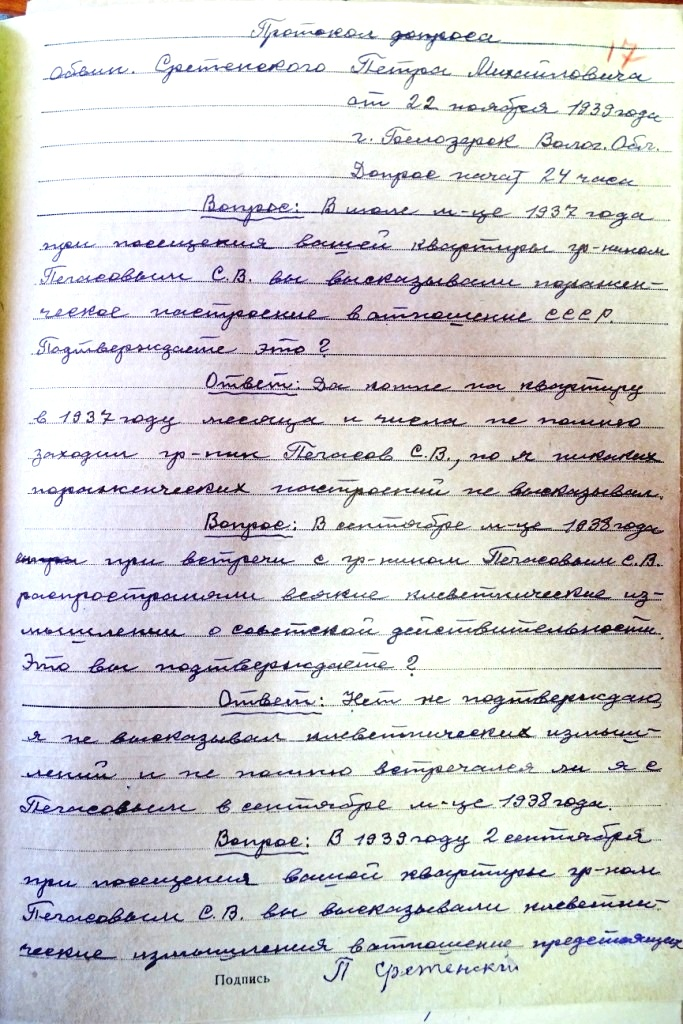 17
Протокол допроса
обвин. Сретенского Петра Михайловича
от 22 ноября 1939 года
г. Белозерск Волог. Обл.
Допрос начат 24 часа
Вопрос: В июле м-це 1937 года
при посещения вашей квартиры гр-нином
Пегасовым С.В. вы высказывали поражен-
ческое настроение в отношение СССР.
Подтверждаете это?
Ответ: Да комне на квартиру
в 1937 году месяца и числа не помню
заходил гр-нин Пегасов С.В., но я никаких
пораженческих настроений не высказывал.
Вопрос: В сентябре м-це 1938 года
при встречи с гр-нином Пегасовым С.В.
распространяли всякие клеветнические из-
мышлении о советской действительности.
Это вы подтверждаете?
Ответ: Нет не подтверждаю,
я не высказывал клеветнических измыш-
лений и не помню встречался ли я с
Пегасовым в сентябре м-це 1938 года.
Вопрос: В 1939 году 2 сентября
при посещения вашей квартиры гр-ном
Пегасовым С.В. вы высказывали клеветни-
ческие измышления в отношение предстоящих
Подпись П Сретенский